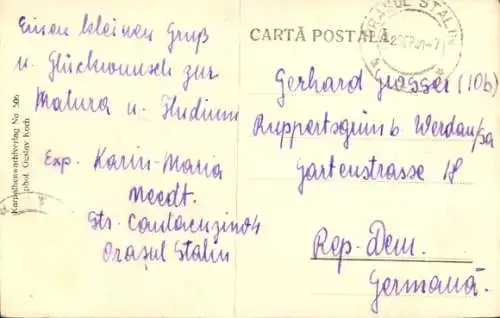 Einen kleinen Gruß
u. Glückwunsch zur
Matura u. Studium
Exp. Karin-Maria
Meedt.
Str. Cantacuzino 4
Orașul Stalin
Karpathenwachtverlag No 506
phot. Gustav Koch
CARTĂ POSTALĂ
ORAȘUL STALIN
Gerhard Grosser (10b)
Ruppertsgrün b. Werdau/Sa
Gartenstrasse 18
Rep. Dem.
Germană.